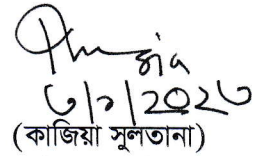 ৩/১/২০২৩
(কাজিয়া সুলতানা)